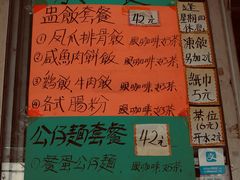 盅飯套餐 42元
①凤爪排骨飯 咖啡奶茶
②咸魚肉餅飯 咖啡奶茶
③鷄飯牛肉飯 咖啡奶茶
④各式腸粉 咖啡奶茶
公仔麵套餐 42元
①餐蛋公仔麵 咖啡奶茶
星期四
休息
凍飲
另加2元
紙巾
5元
茶位
(6元)
开水2元